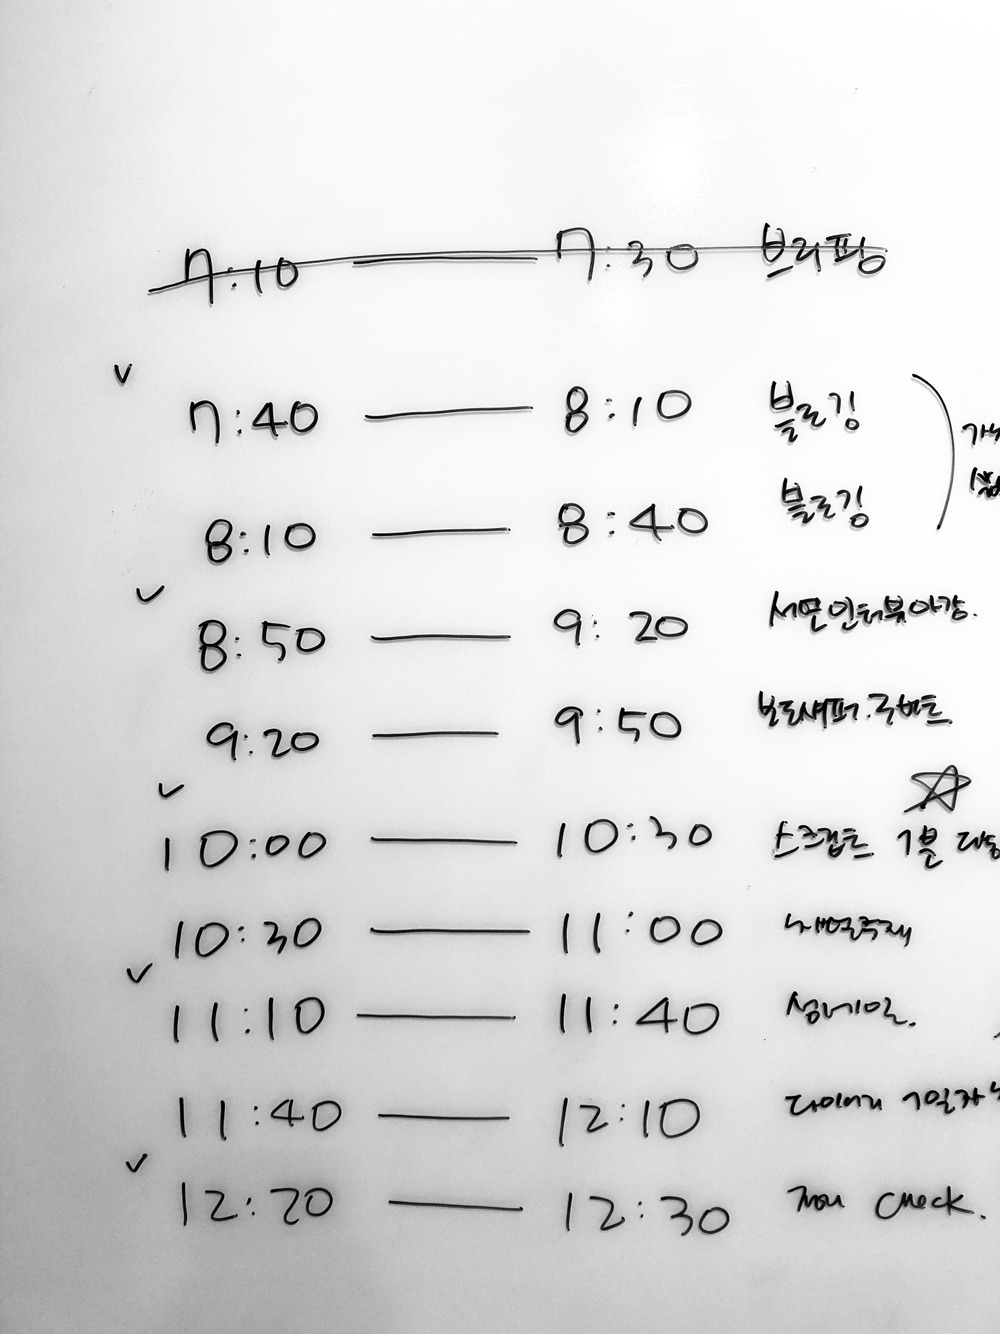 7:10 — 7:30 브리핑
7:40 — 8:10 블로깅
8:10 — 8:40 블로깅
8:50 — 9:20 서면인터뷰마감.
9:20 — 9:50
10:00 — 10:30 스크립트 1분
10:30 — 11:00
11:10 — 11:40 썸네일.
11:40 — 12:10 다이어리
12:20 — 12:30 check.